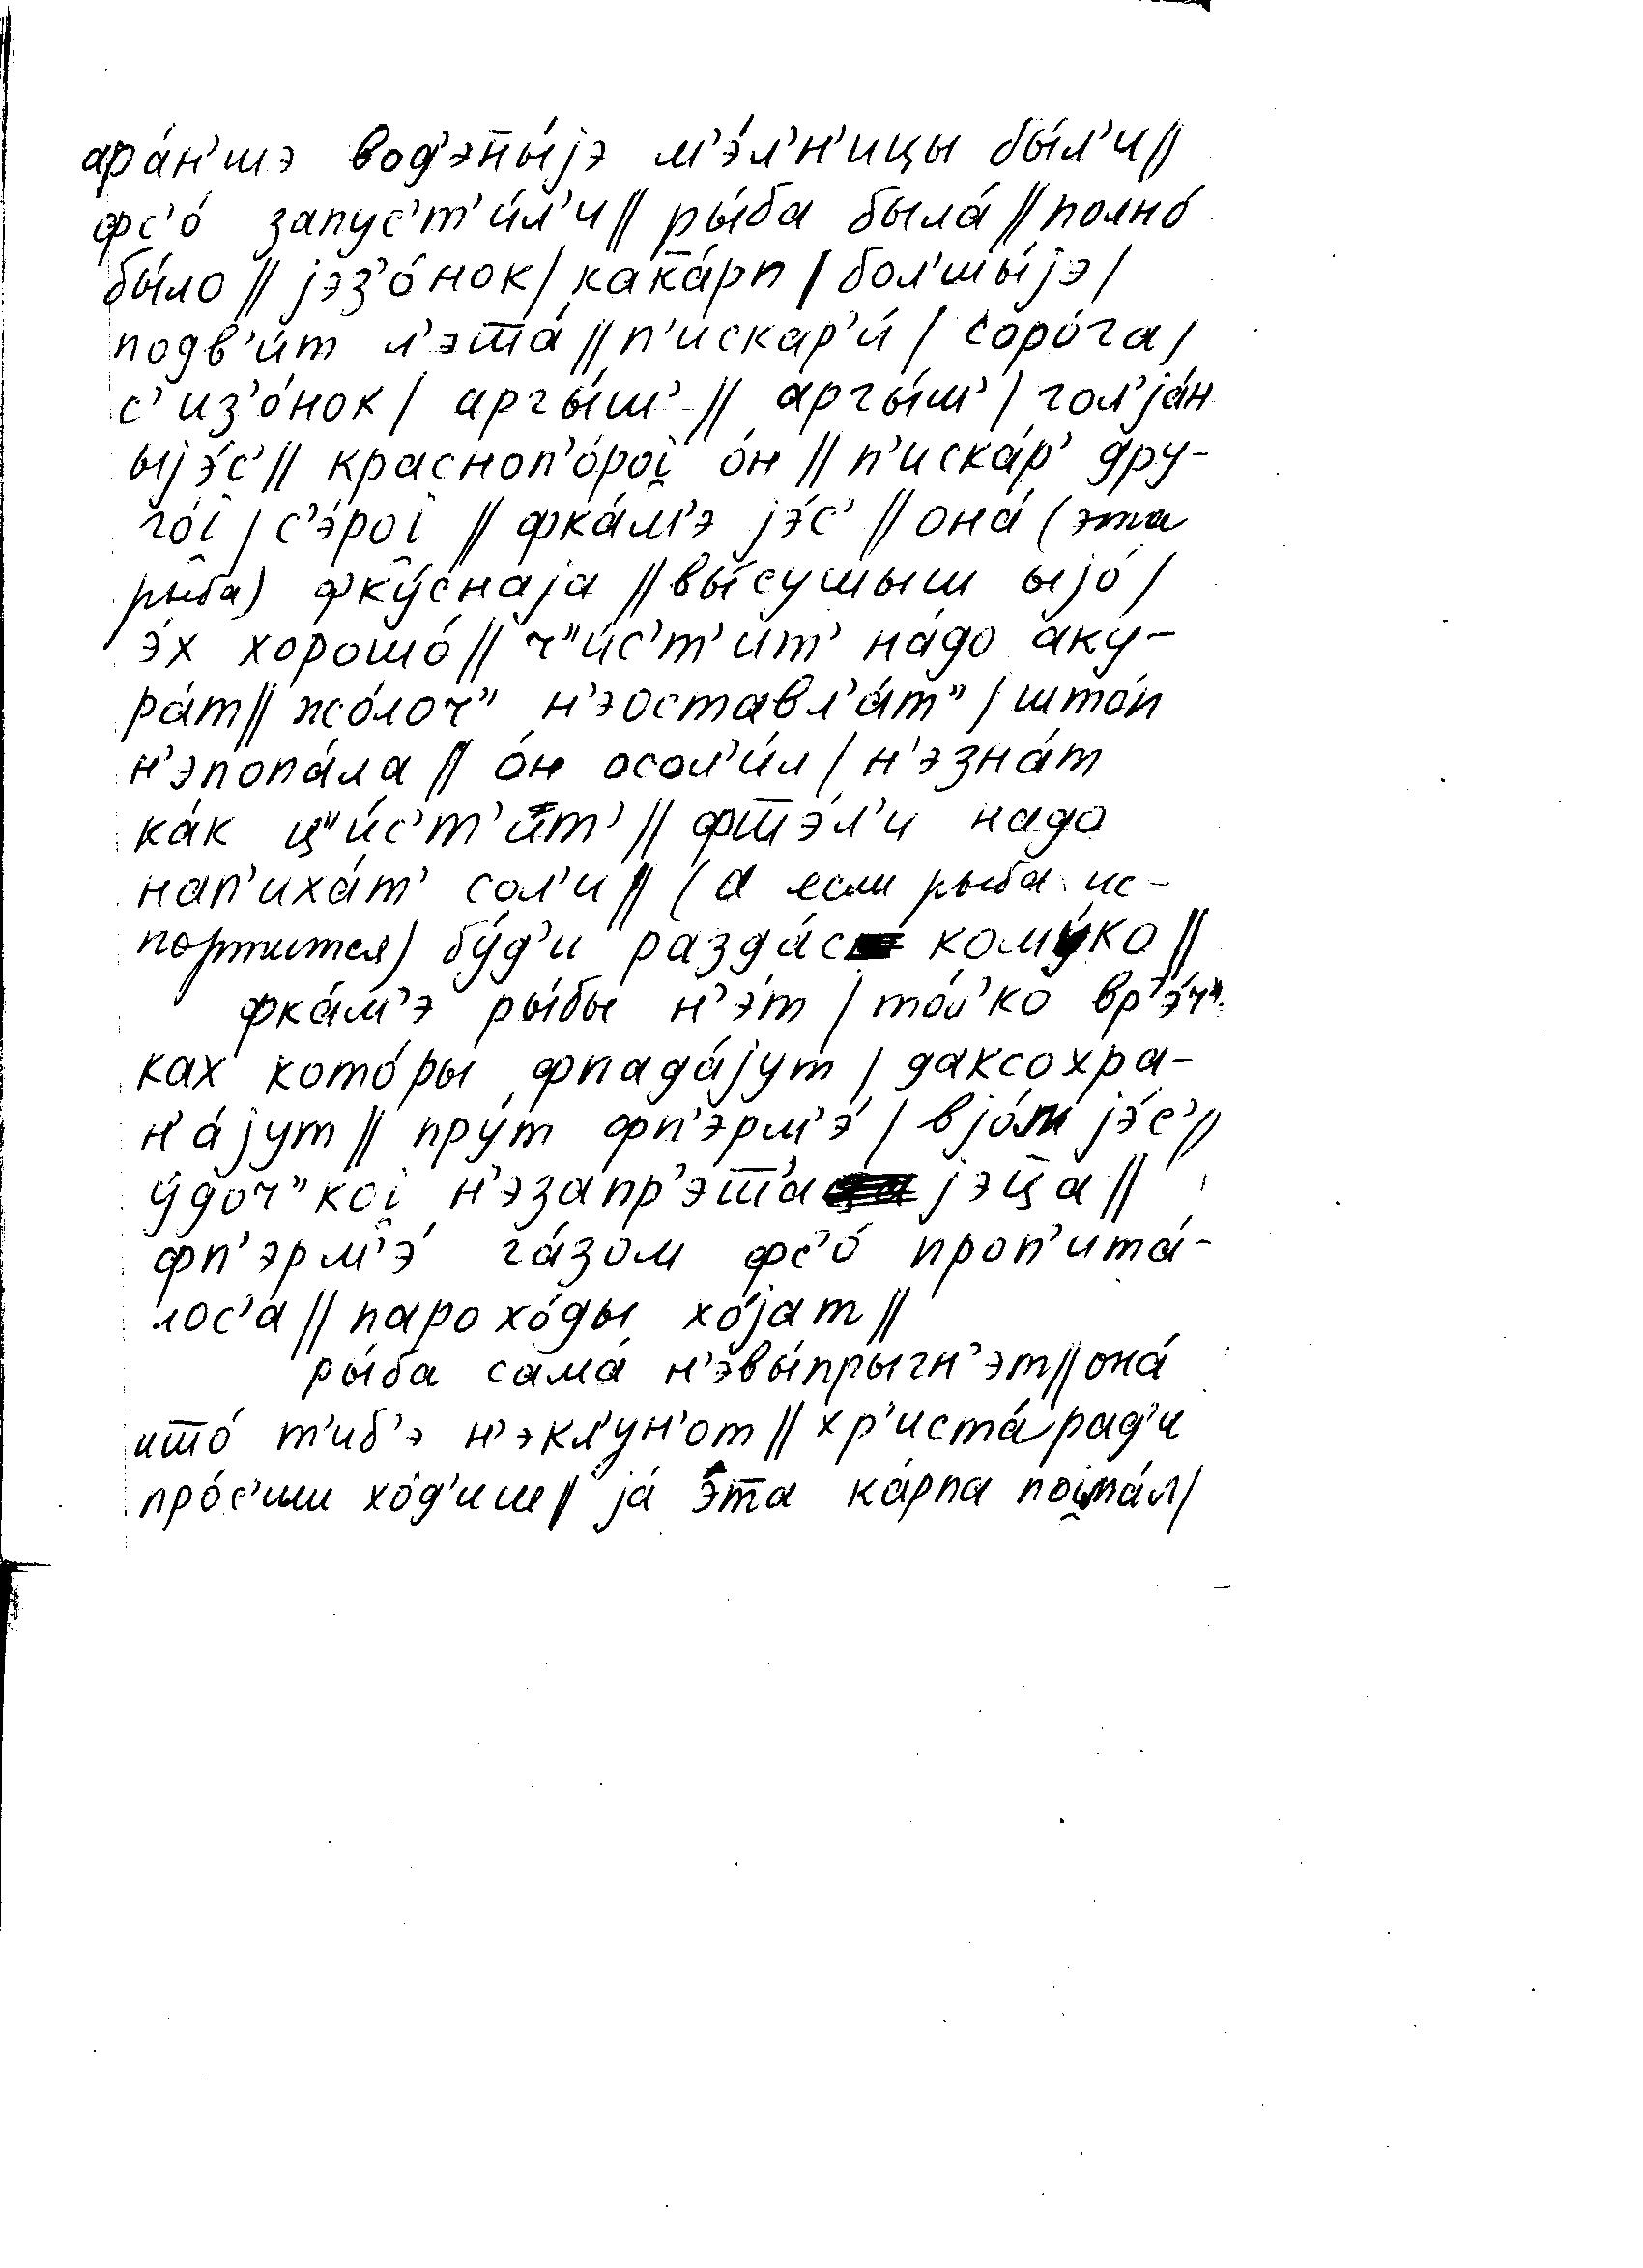 ара́н'шэ вод'эн̅ы́jэ м'э́л'н'ицы бы́л'и//
фс'о́ запус'т'и́л'и// ры́ба была́ // полно́
бы́ло // jэз'о́нок/ как̅а́рп / бол'шы́jэ /
подв'и́т л'эт̅а́ // п'искар'и́ / соро́га /
с'из'о́нок / аргы́ш' // аргы́ш' / гол'jа́н
ыjэ́с' // красноп'о́роi̯ о́н // п'иска́р' дру-
го́i̯ / с'э́роi̯ // фка́м'э jэ́с' // она́ (эта
рыба) фку́снаjа // вы́сушыш ыjо́ /
э́х хорошо́ // ч"и́с'т'ит' на́до аку-
ра́т // жо́лоч" н'эоставл'а́т" / што́п
н'эпопа́ла // о́н осол'и́л / н'эзна́т
ка́к ц"и́с'т'ит' // фт̅э́л'и надо
нап'иха́т' сол'и // (а если рыба ис-
портится) бу́д'и разда́с кому́ко //
фка́м'э ры́бы н'э́т / то́л'ко вр'э́ч"-
ках кото́ры фпада́jут / даксохра-
н'а́jут // пру́т фп'эрм'э́ / вjо́м jэ́с' //
у́доч"коi̯ н'эзапр'эш̅'а jэц̅а //
фп'эрм'э́ га́зом фс'о́ проп'ита́-
лос'а // парохо́ды хо́jат //
ры́ба сама́ н'эвы́прыгн'эт // она́
што́ т'иб'э н'экл'ун'от // хр'иста́рад'и
про́с'иш хо́д'иш // jа́ э́та ка́рпа поi̯ма́л /